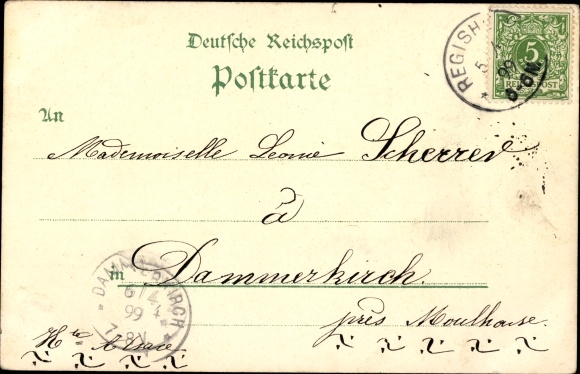 Deutsche Reichspost
Postkarte
REGISH
5 4
99
6-6N.
5
REICHSPOST
An
Mademoiselle Leonie Scherrer
à
in Dammerkirch.
DAMMERKIRCH
6/4
99
7-8V
près Moulhouse.
Hte Alsace